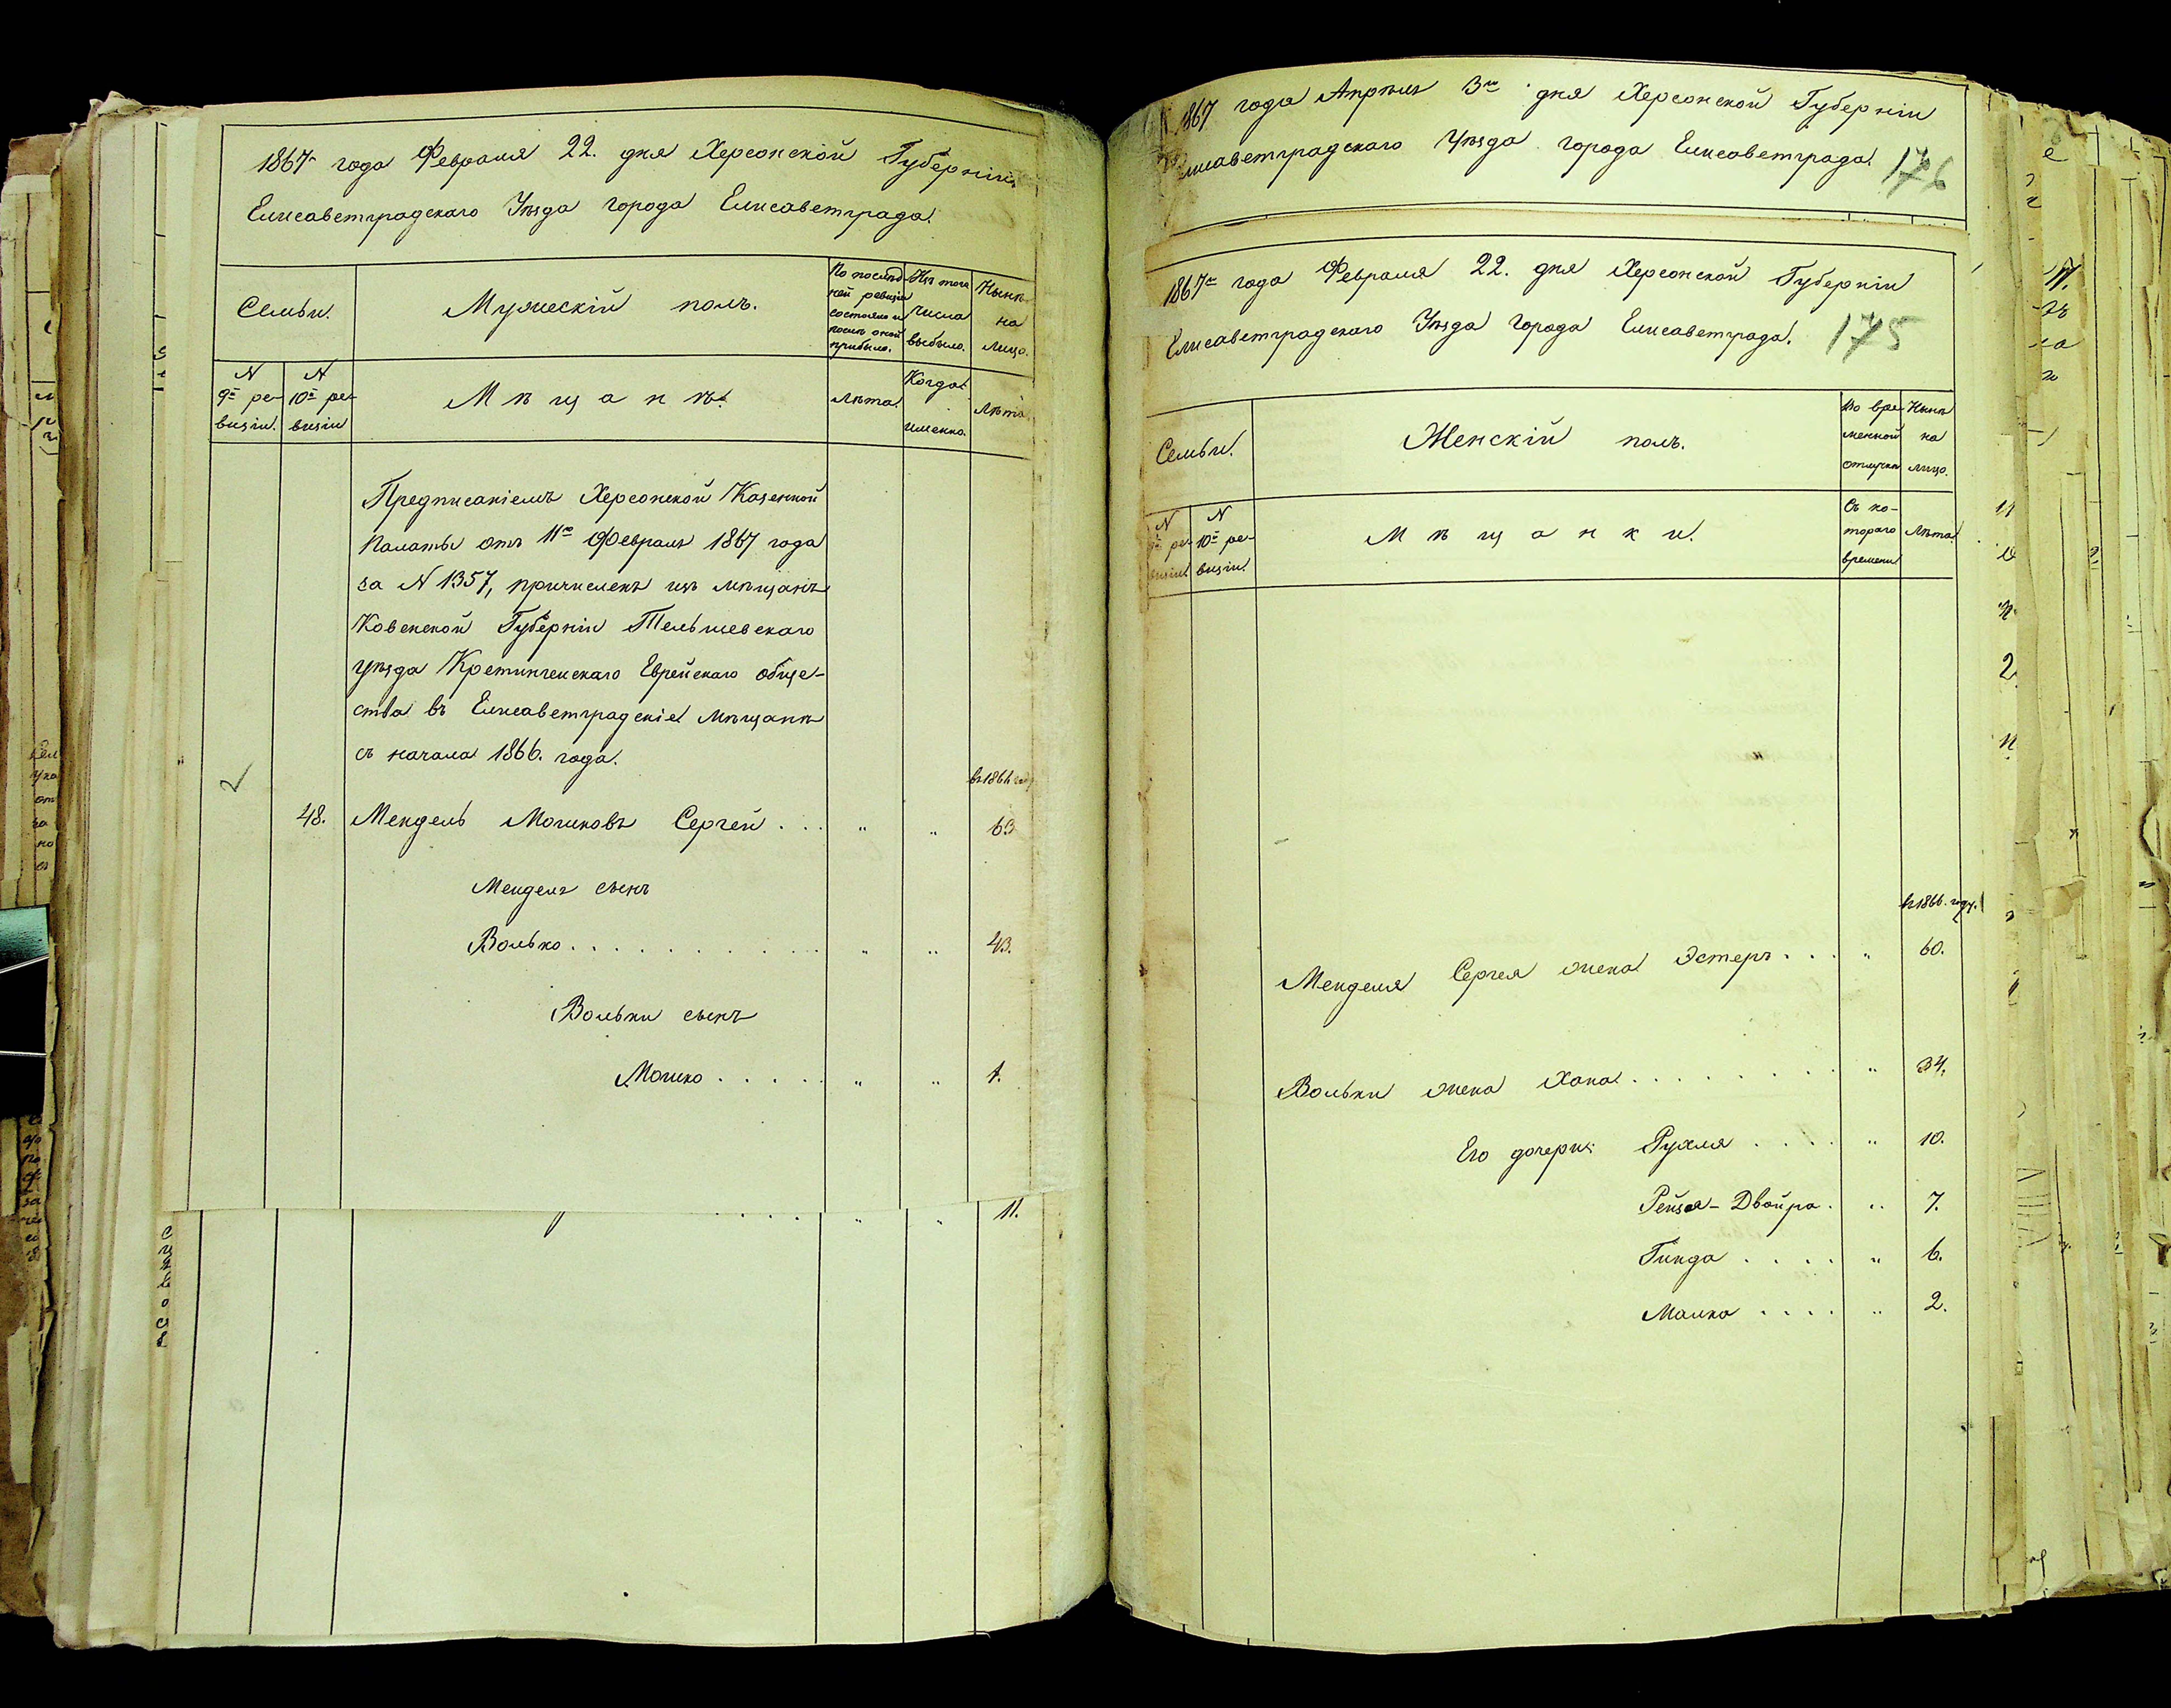 1867 года Февраля 22. дня Херсонской Губерніи
Елисаветградскаго Уѣзда города Елисаветграда.
Семьи.
Мужескій полъ.
По послѣд-
ней ревизіи
состояло и
послѣ оной
прибыло.
Изъ того
числа
выбыло.
Нынѣ
на
лицо.
N
9й ре-
визіи.
N
10й ре-
визіи
Мѣщанѣ.
Лѣта.
Когда
именно.
Лѣта
Предписаніемъ Херсонской Казенной
Палаты отъ 11го Февраля 1867 года
за N 1357, причисленъ изъ мѣщанъ
Ковенской Губерніи Тельшевскаго
уѣзда Кретингенскаго Еврейскаго обще-
ства въ Елисаветградскіе мѣщане
съ начала 1866. года.
въ 1866 году
48. Мендель Мошковъ Сергей . . . " " 63
Менделя сынъ
Волько . . . . . . . . . . . " " 43.
Вольки сынъ
Мошко . . . . . " " 1.
. . . . " " 11.
1867 года Апрѣля 3го дня Херсонской Губерніи
Елисаветградскаго Уѣзда города Елисаветграда. 176
1867го года Февраля 22. дня Херсонской Губерніи
Елисаветградскаго Уѣзда Города Елисаветграда. 175
Семьи.
Женскій полъ.
Во вре-
менной
отлучкѣ
Нынѣ
на
лицо.
N
9й ре-
визіи.
N
10й ре-
визіи.
Мѣщанки.
Съ ко-
тораго
времени
Лѣта.
въ 1866. году.
Менделя Сергея жена Эстеръ . . . " 60.
Вольки жена Хана . . . . . . . . . " 34.
Его дочери: Рухля . . . . " 10.
Рейзя-Двойра . " 7.
Гинда . . . . " 6.
Малка . . . . " 2.